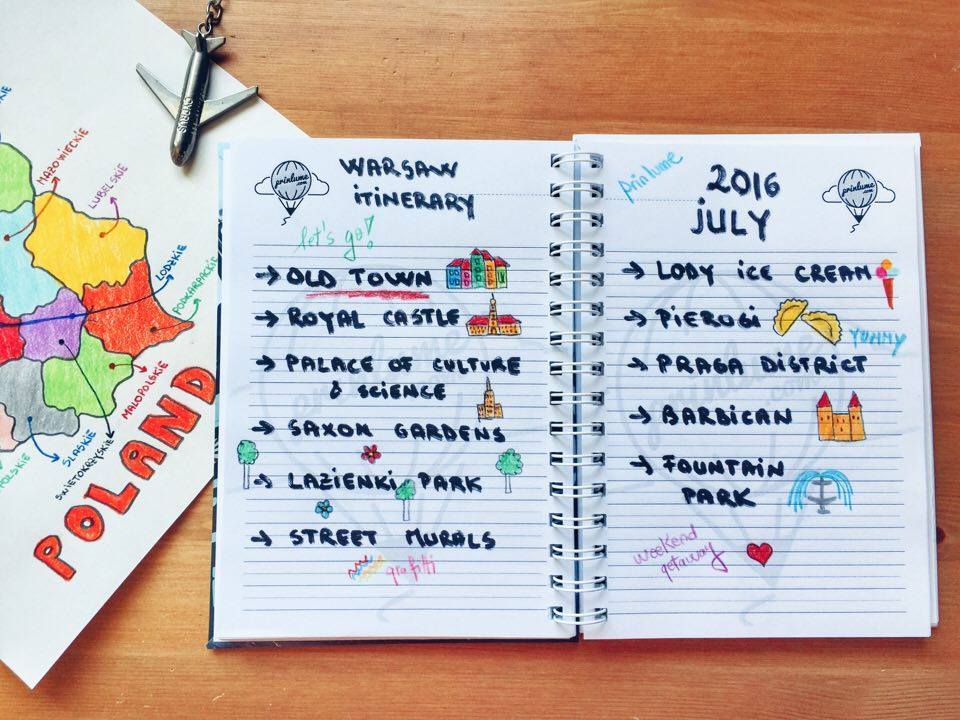 MAZOWIECKIE
LUBELSKIE
ŁÓDZKIE
PODKARPACKIE
MAŁOPOLSKIE
ŚLĄSKIE
ŚWIĘTOKRZYSKIE
POLAND
prinlume
.com
WARSAW
ITINERARY
let's go!
→ OLD TOWN
→ ROYAL CASTLE
→ PALACE OF CULTURE
& SCIENCE
→ SAXON GARDENS
→ LAZIENKI PARK
→ STREET MURALS
graffiti
prinlume
2016
JULY
prinlume
.com
→ LODY ICE CREAM
→ PIEROGI
YUMMY
→ PRAGA DISTRICT
→ BARBICAN
→ FOUNTAIN
PARK
weekend
getaway